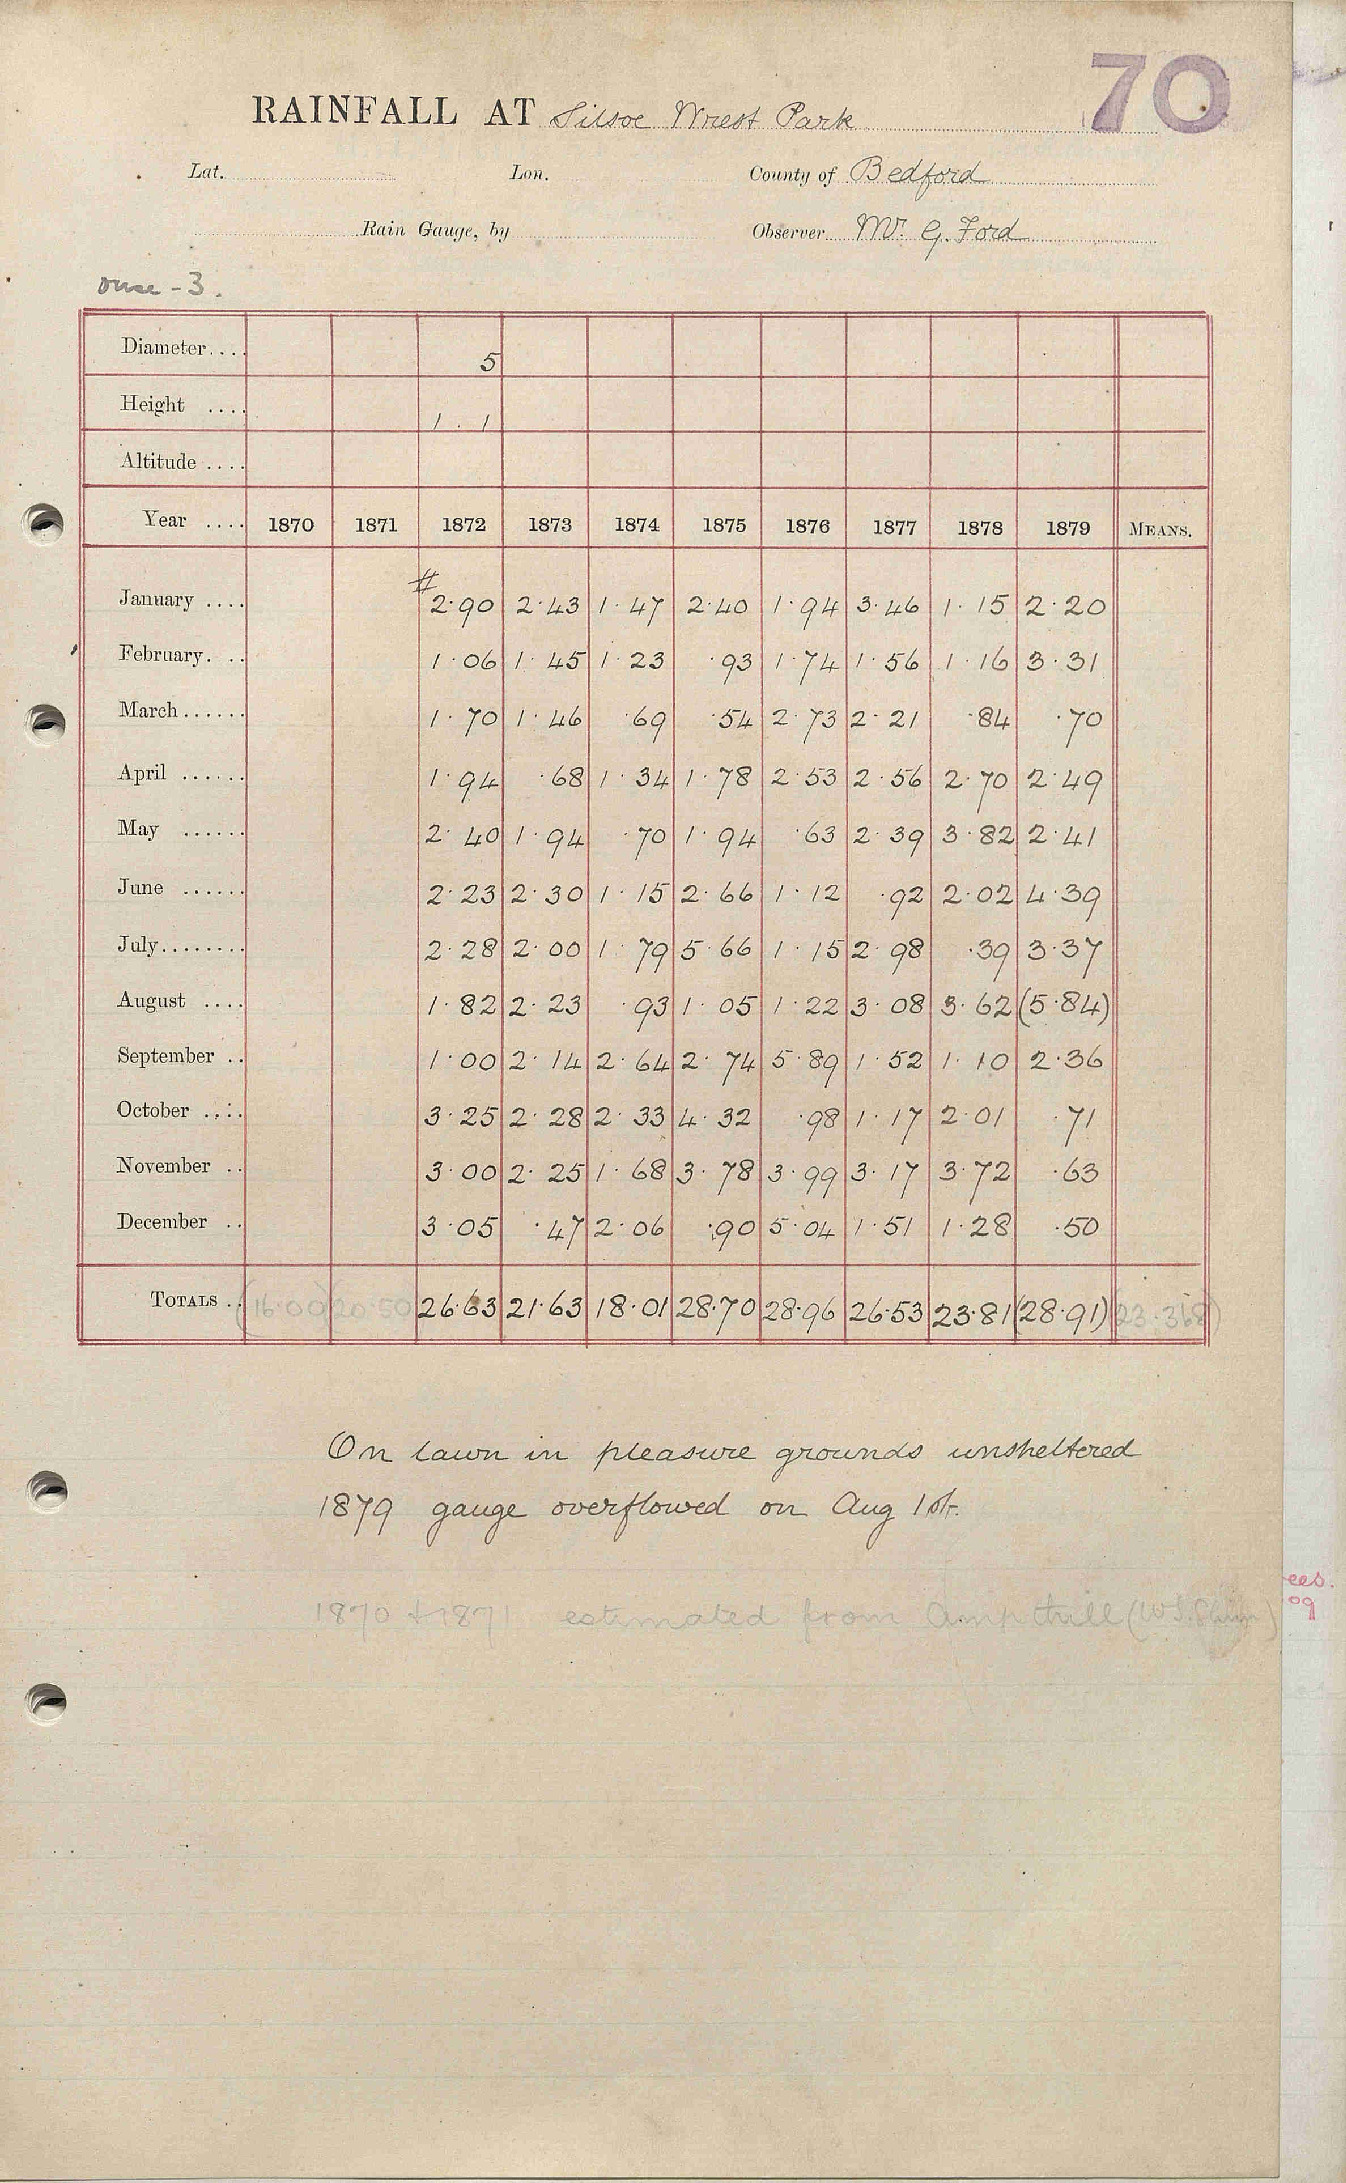 70
RAINFALL AT Silsoe Wrest Park
Lat. Lon. County of Bedford
Rain Gauge, by Observer Mr. G. Ford
Ouse - 3.
Diameter.... 5
Height .... 1 . 1
Altitude ....
Year .... 1870 1871 1872 1873 1874 1875 1876 1877 1878 1879 MEANS.
#
January .... 2.90 2.43 1.47 2.40 1.94 3.46 1.15 2.20
February. .. 1.06 1.45 1.23 .93 1.74 1.56 1.16 3.31
March...... 1.70 1.46 .69 .54 2.73 2.21 .84 .70
April ...... 1.94 .68 1.34 1.78 2.53 2.56 2.70 2.49
May ...... 2.40 1.94 .70 1.94 .63 2.39 3.82 2.41
June ...... 2.23 2.30 1.15 2.66 1.12 .92 2.02 4.39
July........ 2.28 2.00 1.79 5.66 1.15 2.98 .39 3.37
August .... 1.82 2.23 .93 1.05 1.22 3.08 3.62 (5.84)
September .. 1.00 2.14 2.64 2.74 5.89 1.52 1.10 2.36
October .... 3.25 2.28 2.33 4.32 .98 1.17 2.01 .71
November .. 3.00 2.25 1.68 3.78 3.99 3.17 3.72 .63
December .. 3.05 .47 2.06 .90 5.04 1.51 1.28 .50
TOTALS .. (16.00)(20.50) 26.63 21.63 18.01 28.70 28.96 26.53 23.81 (28.91) (23.368)
On lawn in pleasure grounds unsheltered
1879 gauge overflowed on Aug 1st.
1870 & 1871 estimated from Ampthill
ees.
09